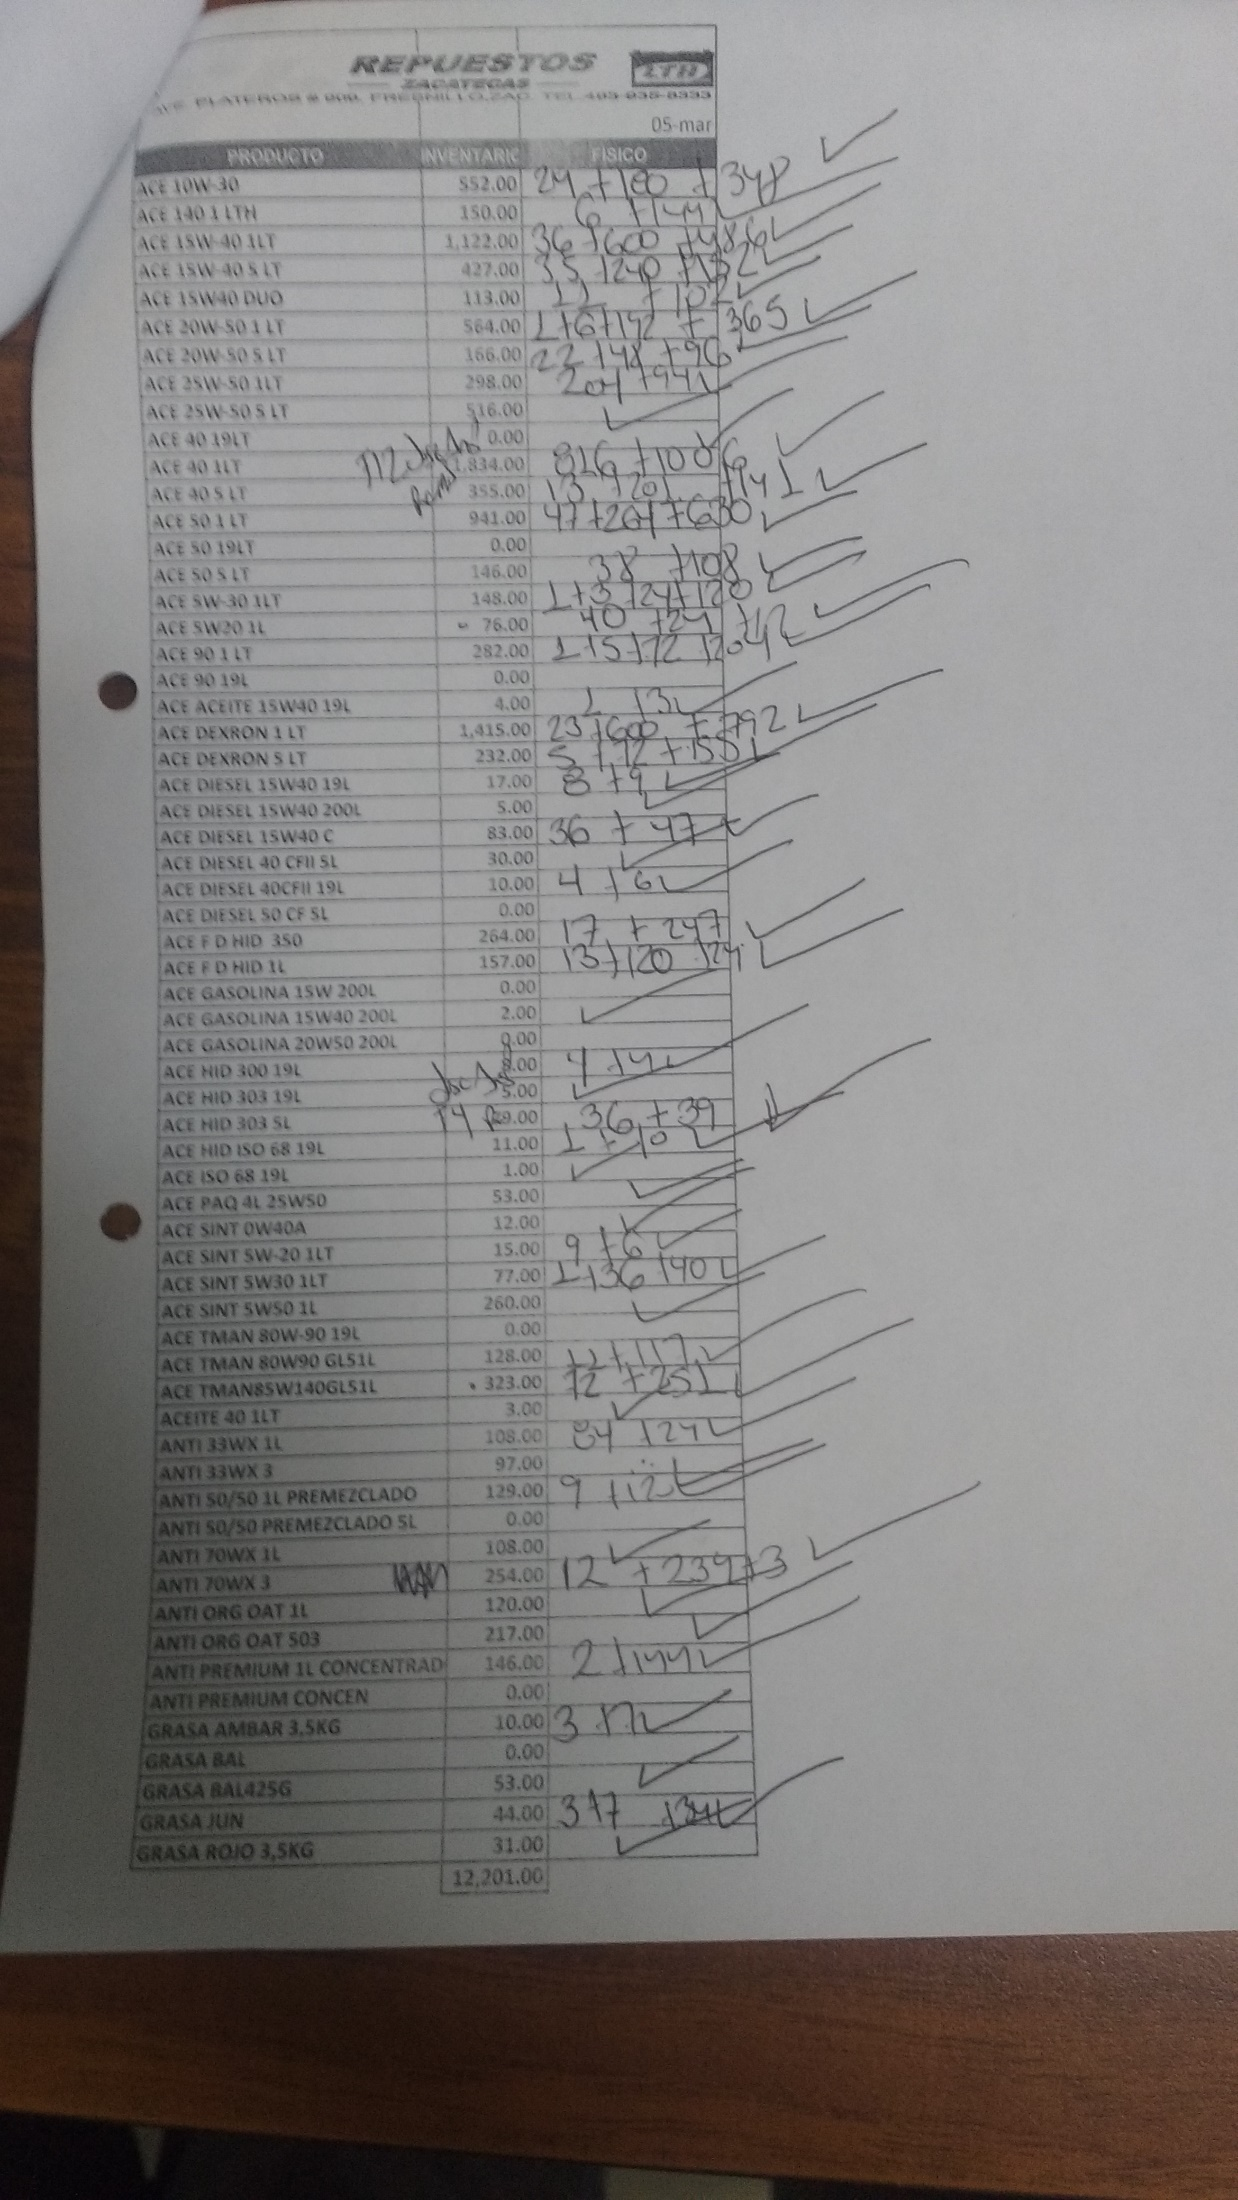 REPUESTOS
ZACATECAS
LTH
AVE PLATEROS # 909, FRESNILLO, ZAC. TEL 493-935-8333
05-mar
PRODUCTO INVENTARIO FISICO
ACE 10W-30 552.00 24 + 180 + 348
ACE 140 1 LTH 150.00 6 + 144
ACE 15W-40 1LT 1,122.00 36 + 600 + 486
ACE 15W-40 5 LT 427.00 35 + 240 + 152
ACE 15W40 DUO 113.00 11 + 102
ACE 20W-50 1 LT 564.00 1+6+192 + 365
ACE 20W-50 5 LT 166.00 22 + 48 + 96
ACE 25W-50 1LT 298.00 204 + 94
ACE 25W-50 5 LT 516.00
ACE 40 19LT 0.00
ACE 40 1LT 1,834.00 816 + 1006
ACE 40 5 LT 355.00 13 + 201 + 141
ACE 50 1 LT 941.00 47+264+630
ACE 50 19LT 0.00
ACE 50 5 LT 146.00 38 + 108
ACE 5W-30 1LT 148.00 1+3+24+120
ACE 5W20 1L 76.00 40 + 24 + 12
ACE 90 1 LT 282.00 1+5+72+204
ACE 90 19L 0.00
ACE ACEITE 15W40 19L 4.00 1 + 3
ACE DEXRON 1 LT 1,415.00 23 + 600 + 792
ACE DEXRON 5 LT 232.00 5 + 72 + 155
ACE DIESEL 15W40 19L 17.00 8 + 9
ACE DIESEL 15W40 200L 5.00
ACE DIESEL 15W40 C 83.00 36 + 47
ACE DIESEL 40 CFII 5L 30.00
ACE DIESEL 40CFII 19L 10.00 4 + 6
ACE DIESEL 50 CF 5L 0.00
ACE F D HID 350 264.00 17 + 247
ACE F D HID 1L 157.00 13+120+24
ACE GASOLINA 15W 200L 0.00
ACE GASOLINA 15W40 200L 2.00
ACE GASOLINA 20W50 200L 0.00
ACE HID 300 19L 8.00 4 + 4
ACE HID 303 19L 5.00
ACE HID 303 5L 89.00 36 + 39
ACE HID ISO 68 19L 11.00 1 + 10
ACE ISO 68 19L 1.00
ACE PAQ 4L 25W50 53.00
ACE SINT 0W40A 12.00
ACE SINT 5W-20 1LT 15.00 9 + 6
ACE SINT 5W30 1LT 77.00 1+36+40
ACE SINT 5W50 1L 260.00
ACE TMAN 80W-90 19L 0.00
ACE TMAN 80W90 GL51L 128.00 11 + 117
ACE TMAN85W140GL51L 323.00 72 + 251
ACEITE 40 1LT 3.00
ANTI 33WX 1L 108.00 84 + 24
ANTI 33WX 3 97.00
ANTI 50/50 1L PREMEZCLADO 129.00 9 + 12
ANTI 50/50 PREMEZCLADO 5L 0.00
ANTI 70WX 1L 108.00
ANTI 70WX 3 254.00 12 + 239+3
ANTI ORG OAT 1L 120.00
ANTI ORG OAT 503 217.00
ANTI PREMIUM 1L CONCENTRAD 146.00 2 + 144
ANTI PREMIUM CONCEN 0.00
GRASA AMBAR 3,5KG 10.00 3 + 7
GRASA BAL 0.00
GRASA BAL425G 53.00
GRASA JUN 44.00 3+7 + 34
GRASA ROJO 3,5KG 31.00
12,201.00